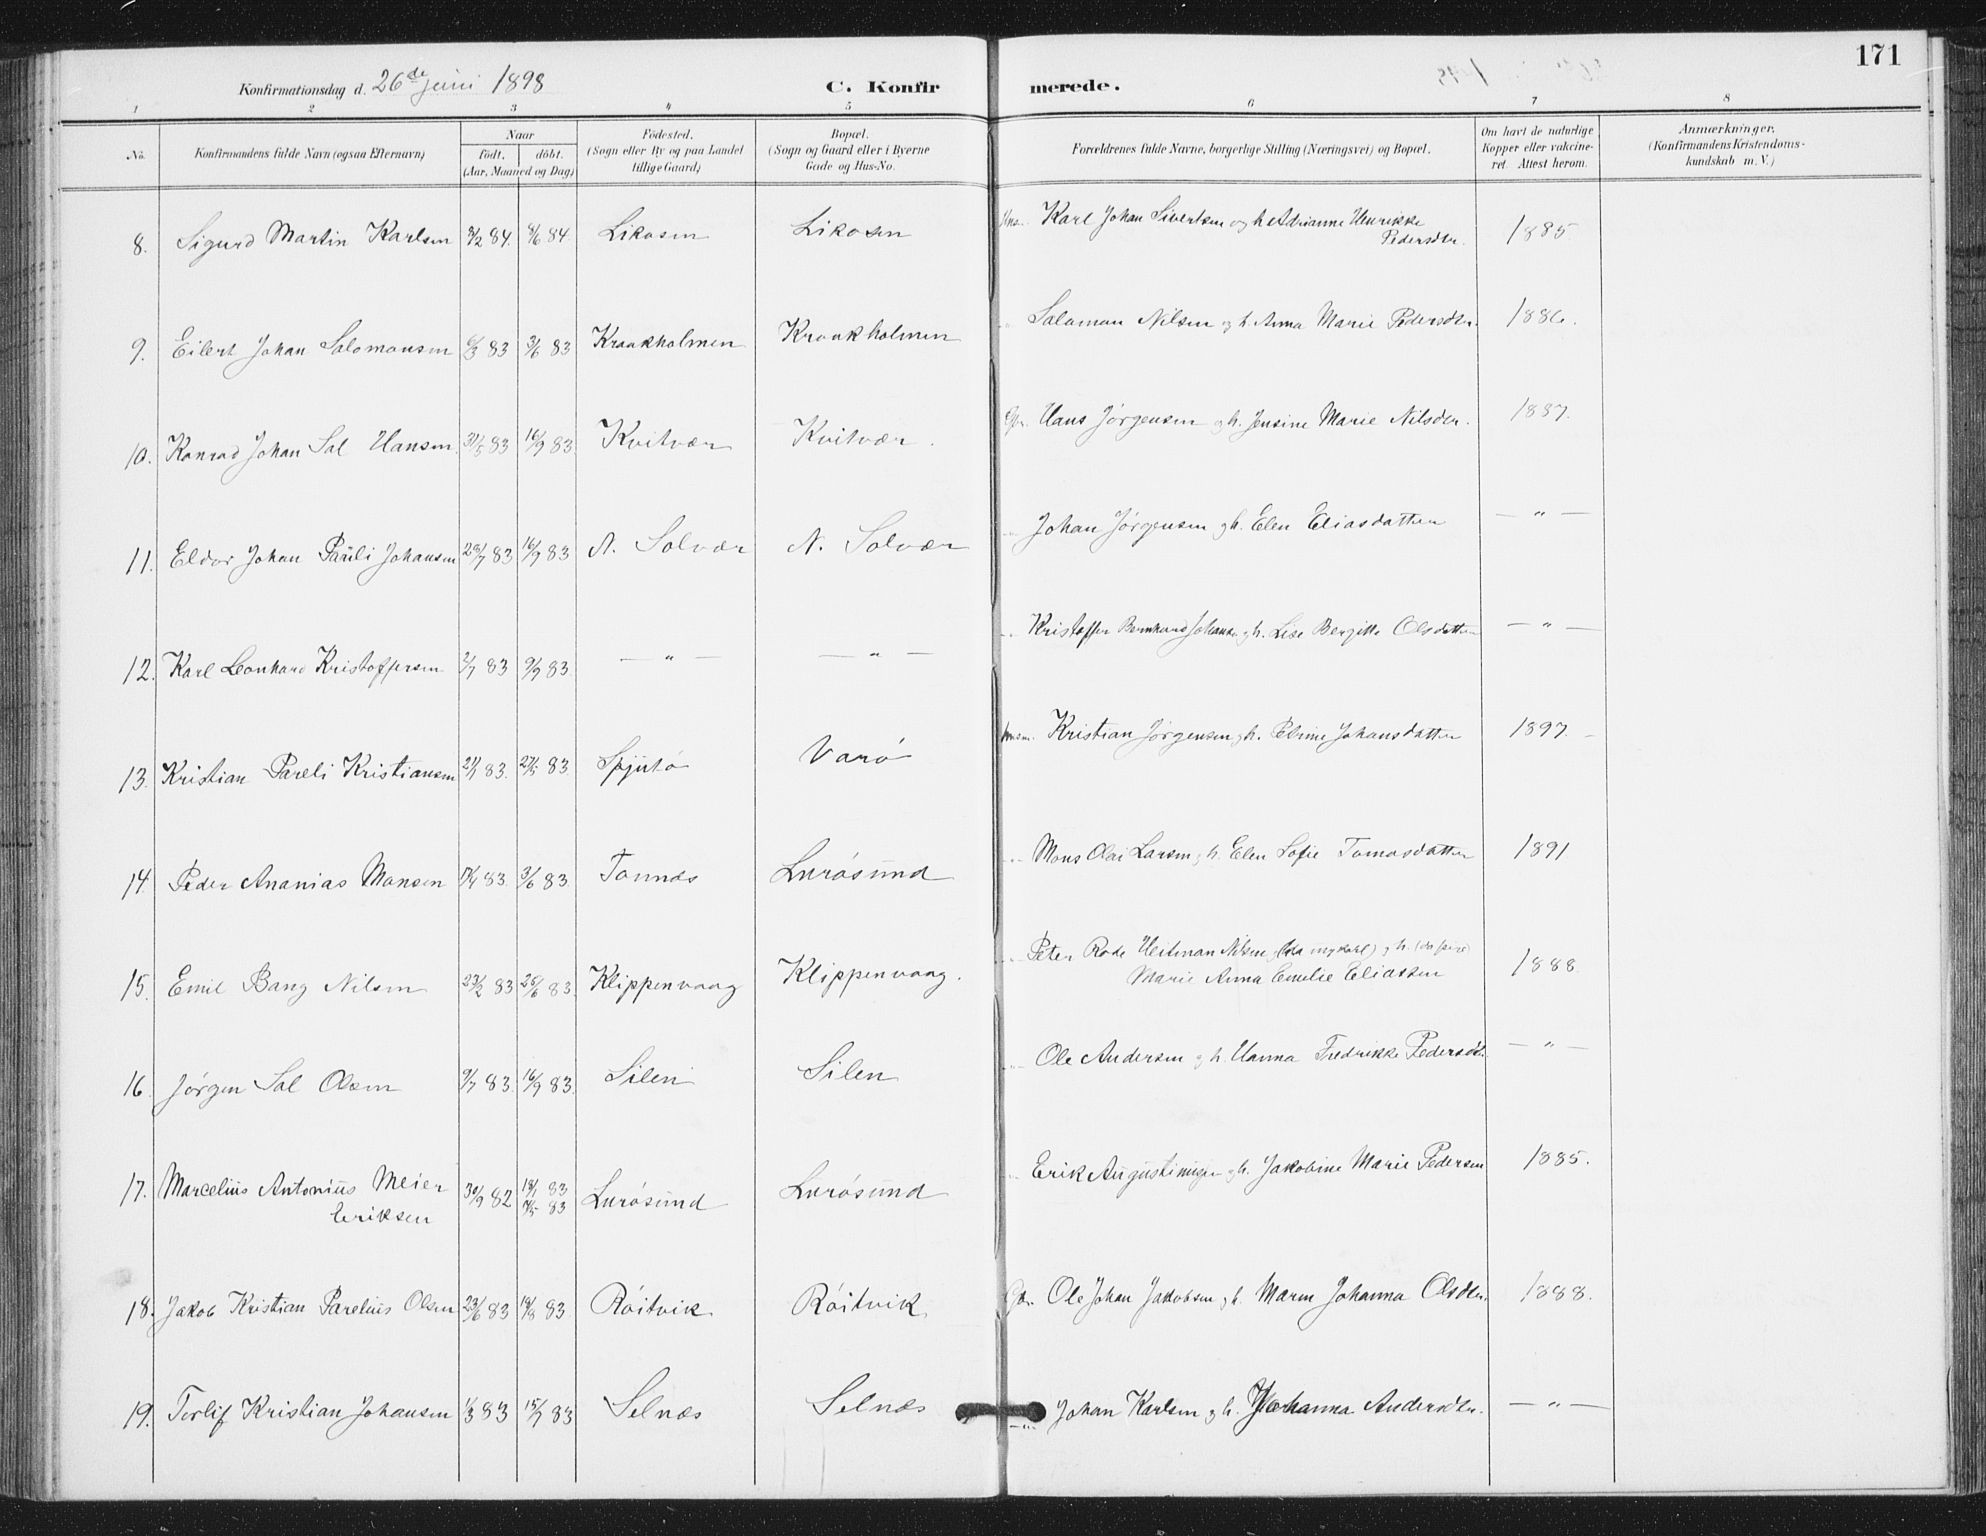 171
Konfirmationsdag d. 26de juni 1898
C. Konfirmerede.
1 2 3 4 5 6 7 8
No. Konfirmandens fulde Navn (ogsaa Efternavn) Naar født. døbt. (Aar, Maaned og Dag) Fødested. (Sogn eller By og paa Landet tillige Gaard) Bopæl. (Sogn og Gaard eller i Byerne Gade og Hus-No. Forældrenes fulde Navne, borgerlige Stilling (Næringsvei) og Bopæl. Om havt de naturlige Kopper eller vakcineret. Attest herom. Anmærkninger. (Konfirmandens Kristendomskundskab m. V.)
8. Sigurd Martin Karlsen 3/2 84. 8/6 84. Likosen Likosen Karl Johan Sivertsen og h. Adrianne Henrikke Pedersdtr. 1885
9. Eilert Johan Salomonsen 6/3 83 3/6 83 Kraakholmen Kraakholmen Salamon Nilsen og h. Anna Marie Pedersdtr. 1886.
10. Konrad Johan Sal Hansen 31/5 83 16/9 83 Kvitvær Kvitvær. Gbr. Hans Jørgensen og h. Jensine Marie Nilsdtr. 1887.
11. Eldor Johan Pauli Johansen 28/7 83 16/9 83 N. Solvær N. Solvær " Johan Jørgensen og h. Elen Eliasdatter — " —
12. Karl Leonhard Kristoffersen 2/7 83 9/9 83 — " — — " — " Kristoffer Bernhard Johansen og h. Lise Bergitte Olsdatter — " —
13. Kristian Pareli Kristiansen 21/1 83. 27/5 83 Spjutø Varø Kristian Jørgensen og h. Petrine Johansdatter 1897.
14. Peder Ananias Monsen 17/4 83. 3/6 83. Tonnes Lurøsund " Mons Olai Larsen og h. Elen Sofie Tomasdatter 1891
15. Emil Bang Nilsen 23/2 83 26/6 83. Klippenvaag Klippenvaag. " Peter Rode Heitman Nilsen og h. Marie Anna Emelie Eliassen 1888.
16. Jørgen Sal Olsen 9/7 83. 16/9 83. Silen Silen " Ole Andersen og h. Hanna Fredrikke Pedersdt. — " —
17. Marcelius Antonius Meier Eriksen 30/9 82 18/1 83 14/5 83 Lurøsund Lurøsund " Erik Augustinusen og h. Jakobine Marie Pedersen 1885.
18. Jakob Kristian Parelius Olsen 23/6 83 19/8 83. Røitvik Røitvik Gbr. Ole Johan Jakobsen og h. Maren Johanna Olsdtr. 1888.
19. Torlif Kristian Johansen 1/3 83 15/7 83 Selnæs Selnæs — " — Johan Karlsen og h. Johanna Andersdtr. — " —